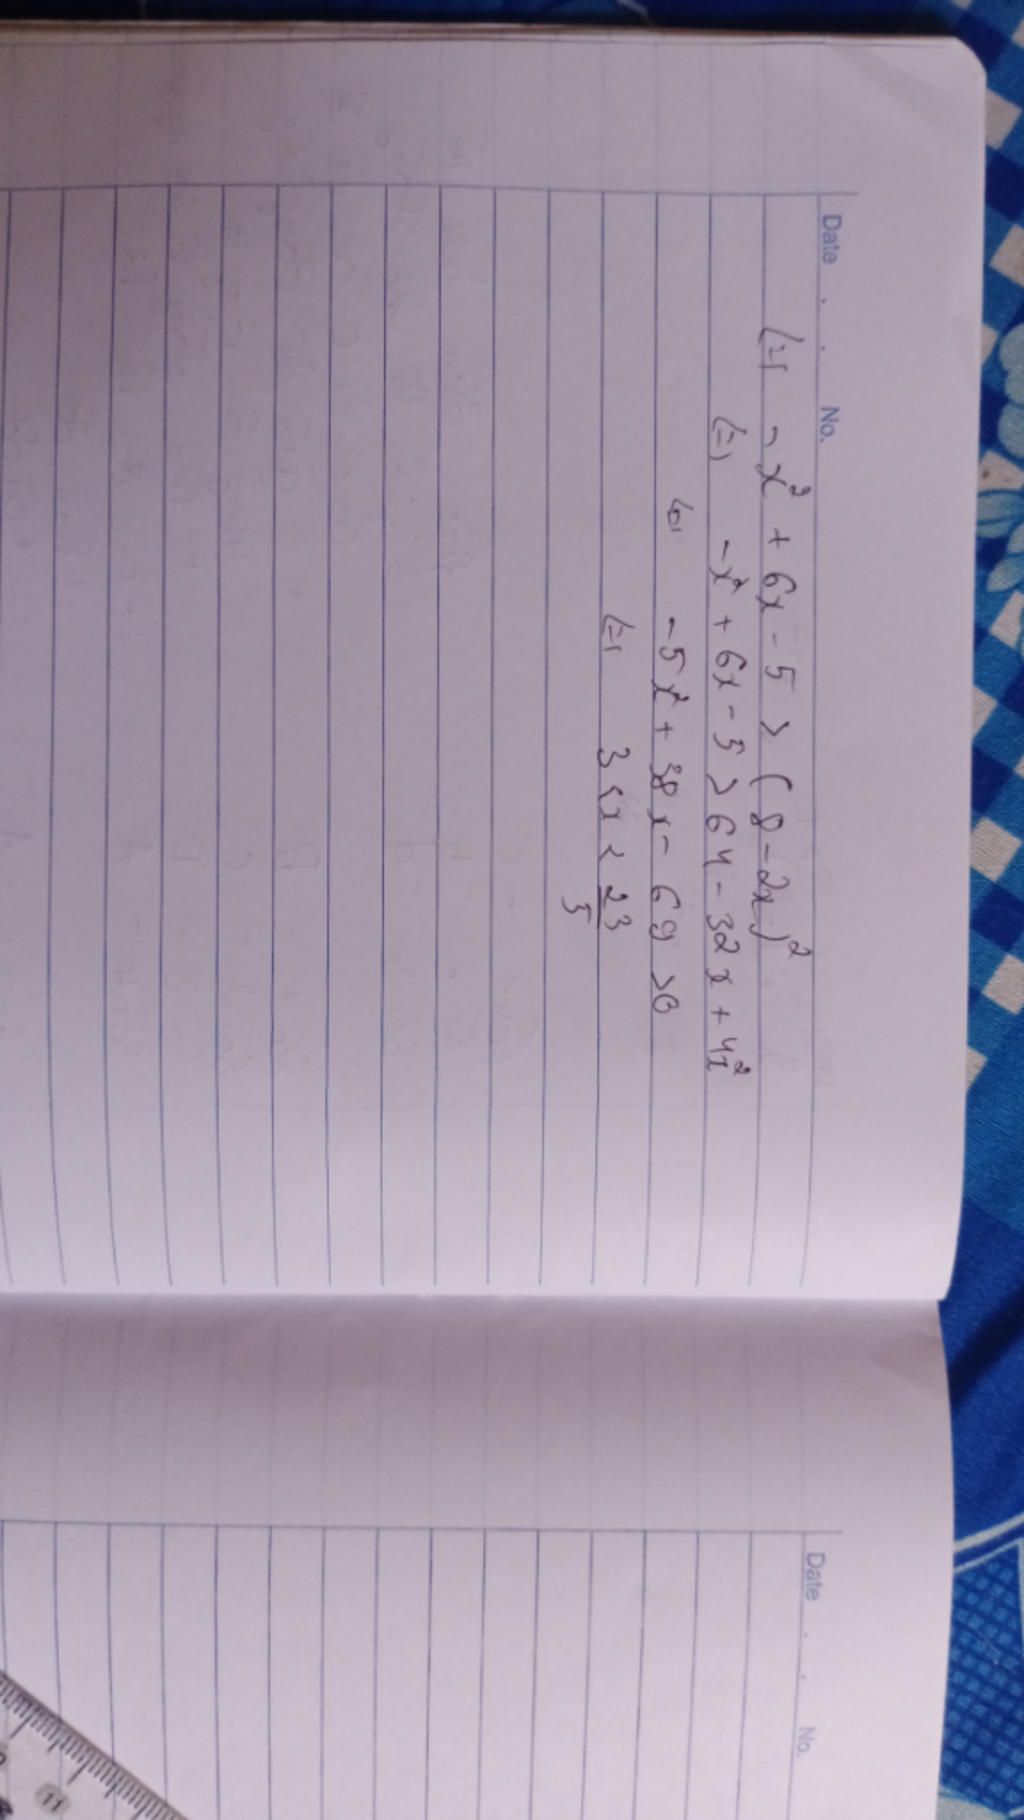 Date . . No.
(=) -x² + 6x - 5 > (8 - 2x)²
(=) -x² + 6x - 5 > 64 - 32x + 4x²
(=) -5x² + 38x - 69 > 0
(=) 3 < x < 23/5
Date . . No.
11